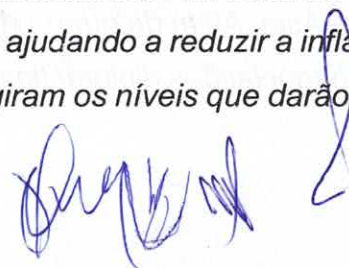 ajudando a reduzir a infla
giram os níveis que darão